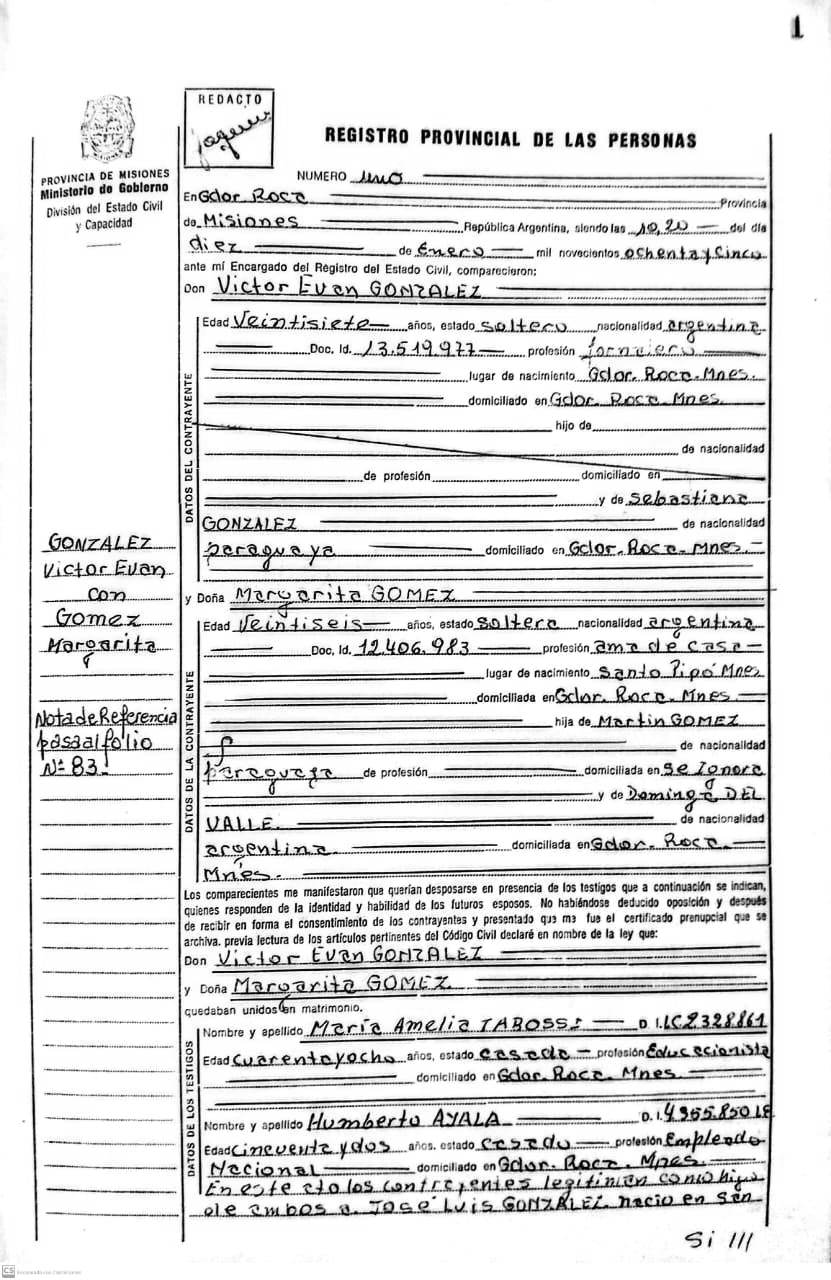 1
REDACTO
PROVINCIA DE MISIONES
Ministerio de Gobierno
División del Estado Civil
y Capacidad
REGISTRO PROVINCIAL DE LAS PERSONAS
NUMERO uno
En Gdor Roca Provincia
de Misiones República Argentina, siendo las 10,20 del día
diez de Enero mil novecientos ochenta y cinco
ante mí Encargado del Registro del Estado Civil, comparecieron:
Don Victor Evan GONZALEZ
DATOS DEL CONTRAYENTE
Edad Veintisiete años, estado soltero nacionalidad argentina
Doc. Id. 13.519.977 profesión jornalero
lugar de nacimiento Gdor. Roca. Mnes.
domiciliado en Gdor. Roca. Mnes.
hijo de
de nacionalidad
de profesión domiciliado en
y de Sebastiana
GONZALEZ de nacionalidad
paraguaya domiciliado en Gdor. Roca. Mnes.
GONZALEZ
Victor Evan
con
Gomez
Margarita
Nota de Referencia
pasa al folio
Nº 83.
y Doña Margarita GOMEZ
DATOS DE LA CONTRAYENTE
Edad Veintiseis años, estado soltera nacionalidad argentina
Doc. Id. 12.406.983 profesión ama de casa
lugar de nacimiento Santo Pipó Mnes
domiciliada en Gdor. Roca. Mnes
hija de Martin GOMEZ
de nacionalidad
paraguaya de profesión domiciliada en se Ignora
y de Dominga DEL
VALLE. de nacionalidad
argentina. domiciliada en Gdor. Roca.
Mnes.
Los comparecientes me manifestaron que querían desposarse en presencia de los testigos que a continuación se indican,
quienes responden de la identidad y habilidad de los futuros esposos. No habiéndose deducido oposición y después
de recibir en forma el consentimiento de los contrayentes y presentado que me fue el certificado prenupcial que se
archiva. previa lectura de los artículos pertinentes del Código Civil declaré en nombre de la ley que:
Don Victor Evan GONZALEZ
y Doña Margarita GOMEZ.
quedaban unidos en matrimonio.
DATOS DE LOS TESTIGOS
Nombre y apellido María Amelia TABOSSI D.I. LC2328861
Edad cuarenta y ocho años, estado casada profesión Educacionista
domiciliado en Gdor. Roca. Mnes
Nombre y apellido Humberto AYALA D.I. 4.955.850 LE
Edad cincuenta y dos años. estado casado profesión Empleado
Nacional domiciliado en Gdor. Roca. Mnes.
En este cto los contrayentes legitiman como hijo
de ambos a José Luis GONZALEZ. nacio en San
Si ///
CS